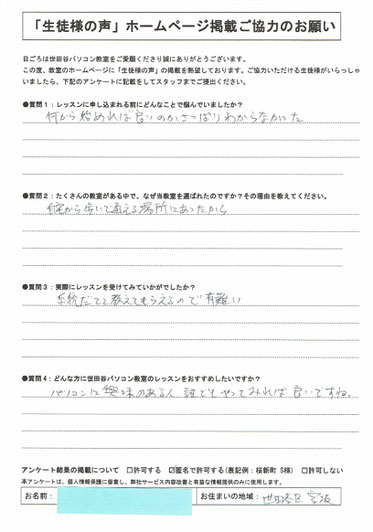 「生徒様の声」ホームページ掲載ご協力のお願い
日ごろは世田谷パソコン教室をご愛顧くださり誠にありがとうございます。
この度、教室のホームページに「生徒様の声」の掲載を熱望しております。ご協力いただける生徒様がいらっしゃ
いましたら、下記のアンケートに記載をしてスタッフまでご提出ください。
●質問1：レッスンに申し込まれる前にどんなことで悩んでいましたか？
何から始めれば良いのかさっぱりわからなかった
●質問2：たくさんの教室がある中で、なぜ当教室を選ばれたのですか？その理由を教えてください。
自宅から歩いて通える場所にあったから
●質問3：実際にレッスンを受けてみていかがでしたか？
系統だてて教えてもらえるので有難い
●質問4：どんな方に世田谷パソコン教室のレッスンをおすすめしたいですか？
パソコンに興味のある人 誰でもやってみれば良いですね。
アンケート結果の掲載について □許可する ☑匿名で許可する(表記例：桜新町 S様) □許可しない
本アンケートは、個人情報保護に留意し、弊社サービス内容改善と有益な情報提供のみに使用します。
お名前： お住まいの地域： 世田谷区 宮坂